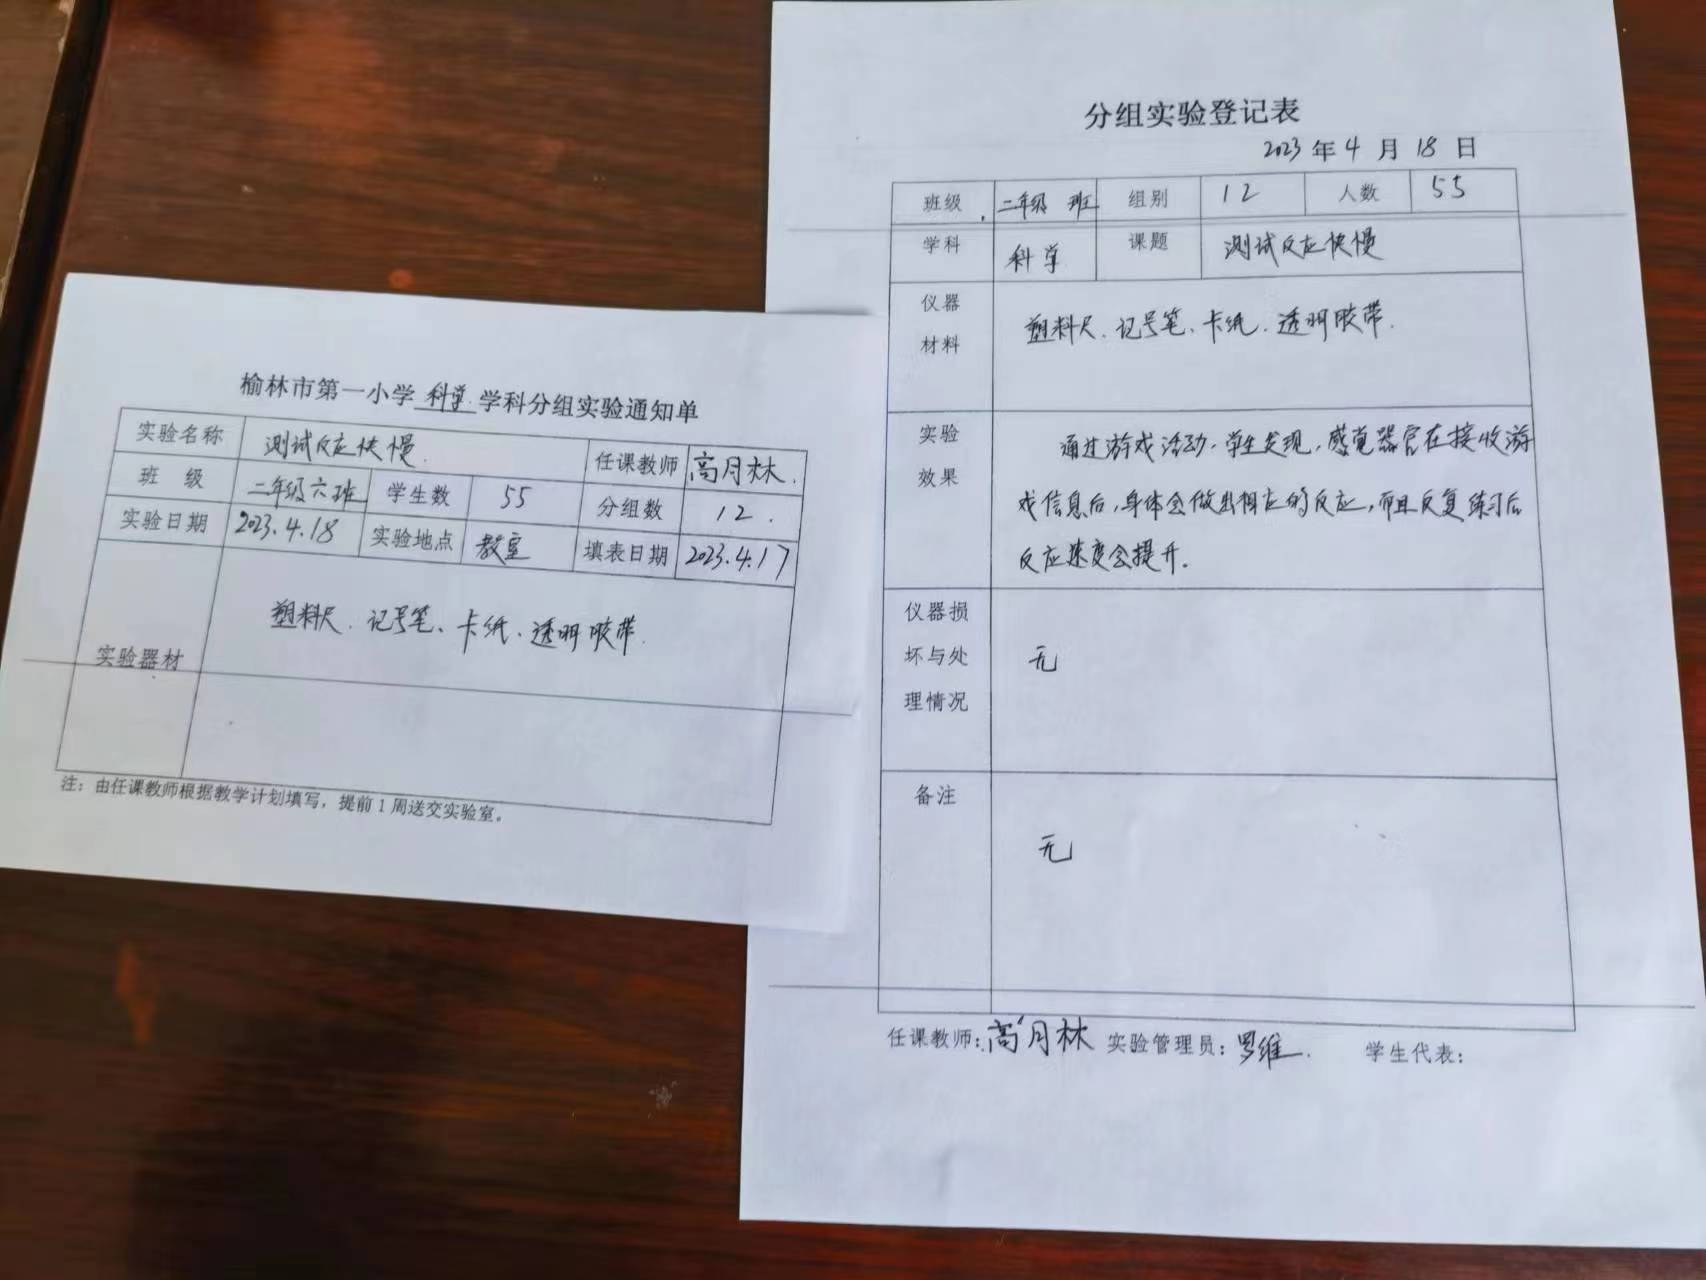 榆林市第一小学 科学 学科分组实验通知单
实验名称 测试反应快慢 任课教师 高月林
班 级 二年级六班 学生数 55 分组数 12
实验日期 2023.4.18 实验地点 教室 填表日期 2023.4.17
实验器材 塑料尺、记号笔、卡纸、透明胶带
注：由任课教师根据教学计划填写，提前1周送交实验室。
分组实验登记表
2023 年 4 月 18 日
班级 二年级 班 组别 12 人数 55
学科 科学 课题 测试反应快慢
仪器
材料
塑料尺、记号笔、卡纸、透明胶带.
实验
效果
通过游戏活动，学生发现，感觉器官在接收游
戏信息后，身体会做出相应的反应，而且反复练习后
反应速度会提升.
仪器损
坏与处
理情况
无
备注
无
任课教师：高月林 实验管理员：罗维. 学生代表：